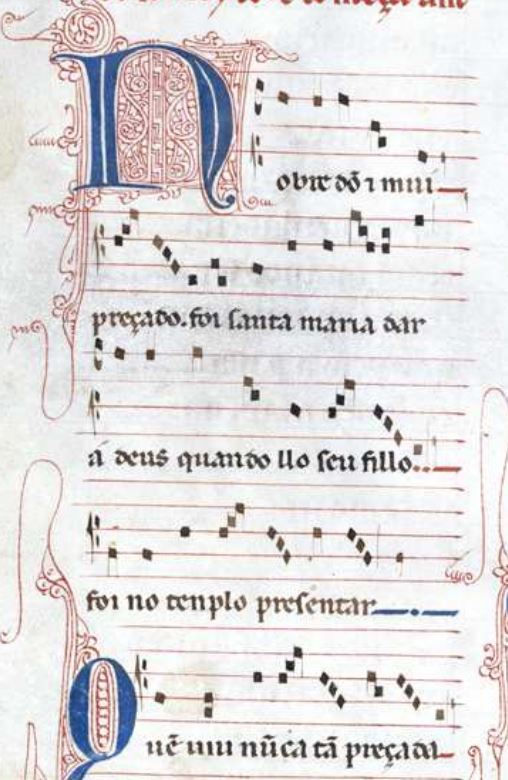 Nobre dõ ⁊ mui
preçado. foi santa maria dar
á deus quando llo seu fillo
foi no tenplo presentar
Quē uiu nũca tã preçada